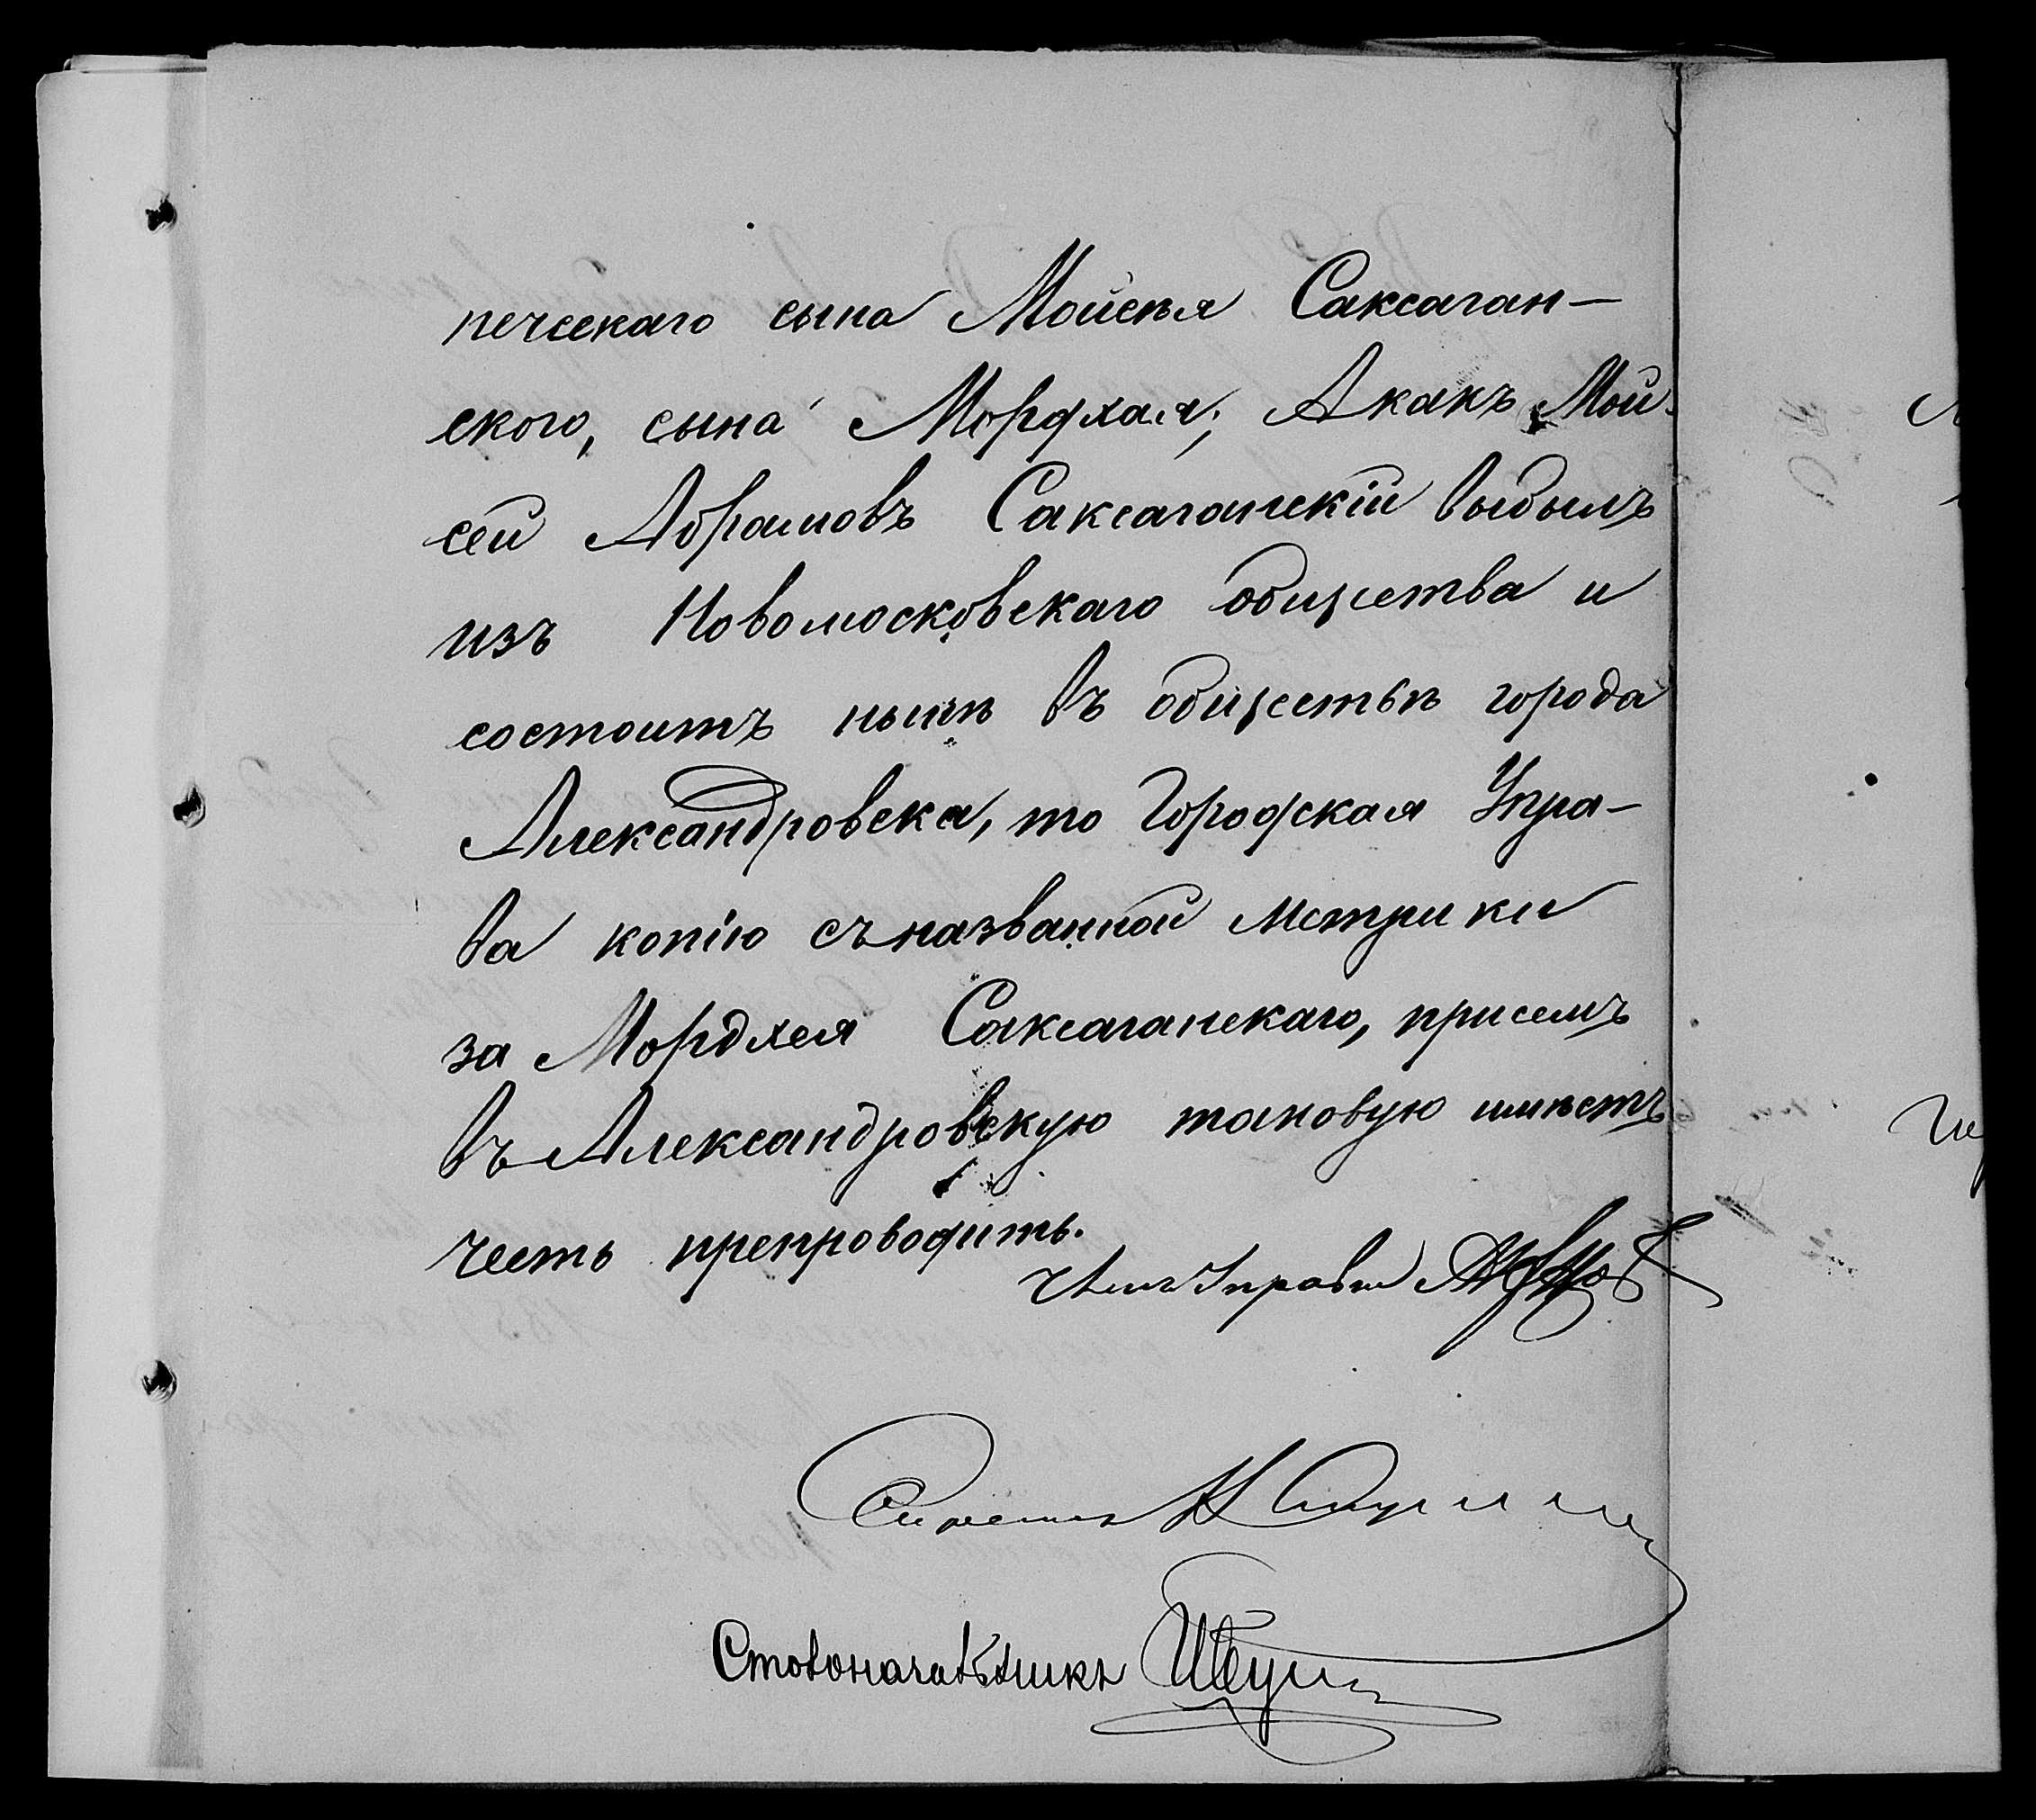 печескаго сына Мойсея Саксаган-
ского, сына Мордхая; А какъ Мой-
сей Абрамовъ Саксаганскій выбылъ
изъ Новомосковскаго общества и
состоитъ нынѣ въ обществѣ города
Александровска, то Городская Упра-
ва копію съ названной метрики
за Мордхея Саксаганскаго, при семъ
въ Александровскую таковую имѣетъ
честь препроводить.
Членъ Управы
Секретарь
Столоначальникъ